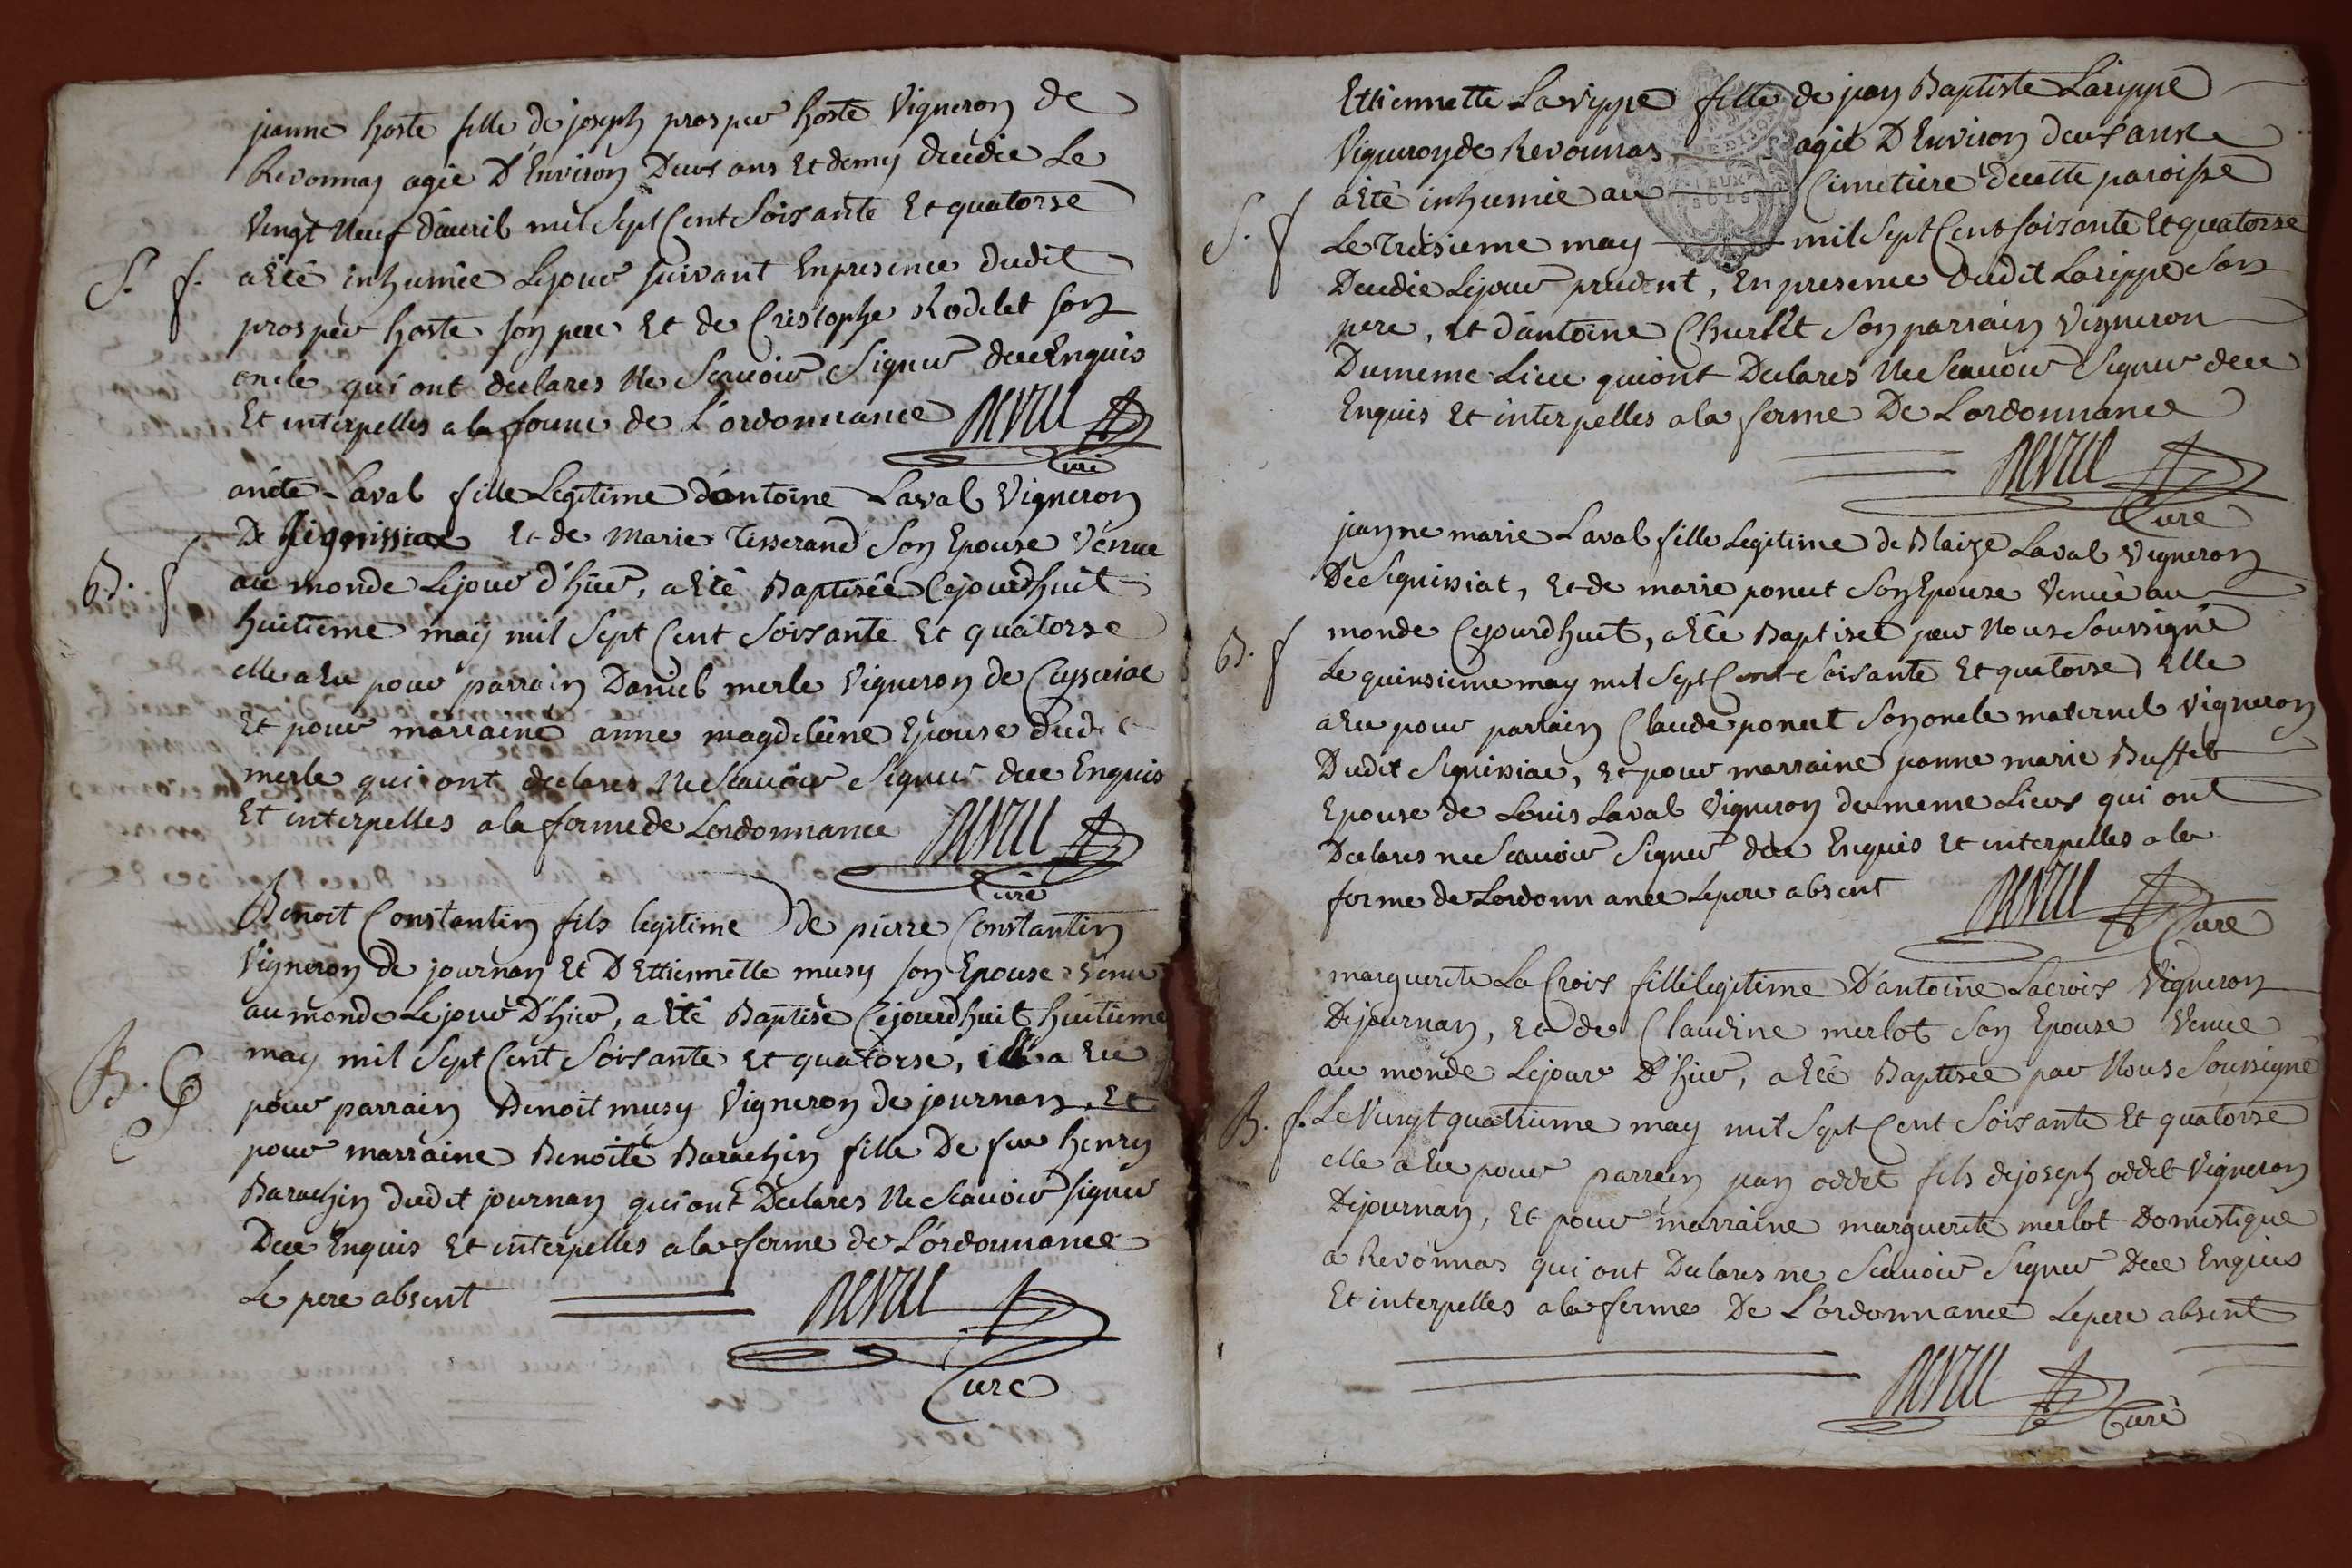 janne hoste fille de joseph prosper hoste Vigneron de
Revonnas agée D'Environ Deux ans Et demy decedée Le
Vingt Neuf d'avril mil Sept Cent Soixante Et quatorse
S. f. a Eté inhumée Le jour suivant En presence dudit
prosper hoste son pere Et de Cristophe Rodelet son
oncle qui ont declarés Ne Scavoir Signer dece Enquis
Et interpelles a la forme de L'ordonnance
Curé
anete Laval fille Legitime d'antoine Laval Vigneron
De Et de Marie Tisserand Son Epouse Vénue
B. f au monde Le jour d'hier, a Eté Baptisée Cejourdhuit
huitieme may mil Sept Cent Soixante Et quatorse
elle a Eu pour parrain Daniel merle Vigneron de Ceyseriac
Et pour marraine anne magdeleine Epouse dudit
merle qui ont declares Ne Scavoir Signer dece Enquis
Et interpelles a la forme de Lordonnance
Curé
Benoit Constantin fils legitime de pierre Constantin
Vigneron de journan Et D'Ettiennette musy son Epouse Venu
au monde Le jour D'hier, a Eté Baptisé Cejourdhuit huitieme
B. G may mil Sept Cent Soixante Et quatorse, il a Eu
pour parrain Benoit musy Vigneron de journan, Et
pour marraine Benoite Barachin fille De feu henry
Barachin dudit journan qui ont Declares Ne Scavoir signer
Dece Enquis Et interpelles a la forme de L'ordonnance
Le pere absent
Curé
Ettiennette Larippe fille de jean Baptiste Larippe
Vigneron de Revonnas agée D'Environ deux ans
a Eté inhumée au Cimetiere decette paroisse
S. f Le Treisieme may mil Sept Cent soixante Et quatorse
Decedée Le jour precedent, En presence dudit Larippe Son
pere, Et d'antoine Churlet Son parrain Vigneron
Du meme Lieu qui ont Declares Ne Scavoir Signer dece
Enquis Et interpelles a la forme De Lordonnance
Curé
janne marie Laval fille Legitime de Blaize Laval Vigneron
De Siquissiat, Et de marie ponet Son Epouse Venuë au
B. f monde Cejourdhuit, a Eté Baptisée par Nous Soussigné
Le quinsieme may mil Sept Cent Soixante Et quatorse Elle
a Eu pour parrain Claude ponet Son oncle maternel Vigneron
Dudit Siquissiac, Et pour marraine janne marie Buffet
Epouse de Louis Laval Vigneron du meme Lieux qui ont
Declares ne Scavoir Signer dece Enquis Et interpelles a la
forme de Lordonnance Le pere absent
Curé
marguerite La Croix fille legitime D'antoine Lacroix Vigneron
De journan, Et de Claudine merlot Son Epouse Venue
au monde Le jour D'hier, a Eté Baptisée par Nous Soussigné
B. f. Le Vingt quatrieme may mil Sept Cent Soixante Et quatorse
elle a Eu pour parrain jean oddet fils de joseph oddet Vigneron
De journan, Et pour marraine marguerite merlot Domestique
a Revonnas qui ont Declares ne Scavoir Signer Dece Enquis
Et interpelles a la forme De L'ordonnance Le pere absent
Curé